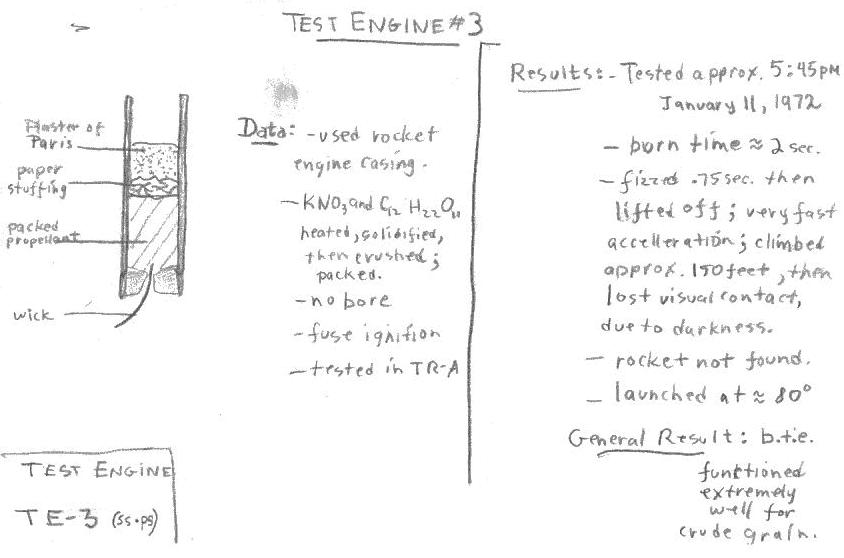 TEST ENGINE #3
Plaster of
Paris
paper
stuffing
packed
propellant
wick
TEST ENGINE
TE-3 (ss.pg)
Data: - used rocket
engine casing.
- KNO3 and C12 H22O11
heated, solidified,
then crushed;
packed.
- no bore
- fuse ignition
- tested in TR-A
Results: - Tested approx. 5:45 PM
January 11, 1972
- burn time ≈ 2 sec.
- fizzed .75 sec. then
lifted off; very fast
accelleration; climbed
approx. 150 feet, then
lost visual contact,
due to darkness.
- rocket not found.
- launched at ≈ 80°
General Result: b.t.e.
functioned
extremely
well for
crude grain.